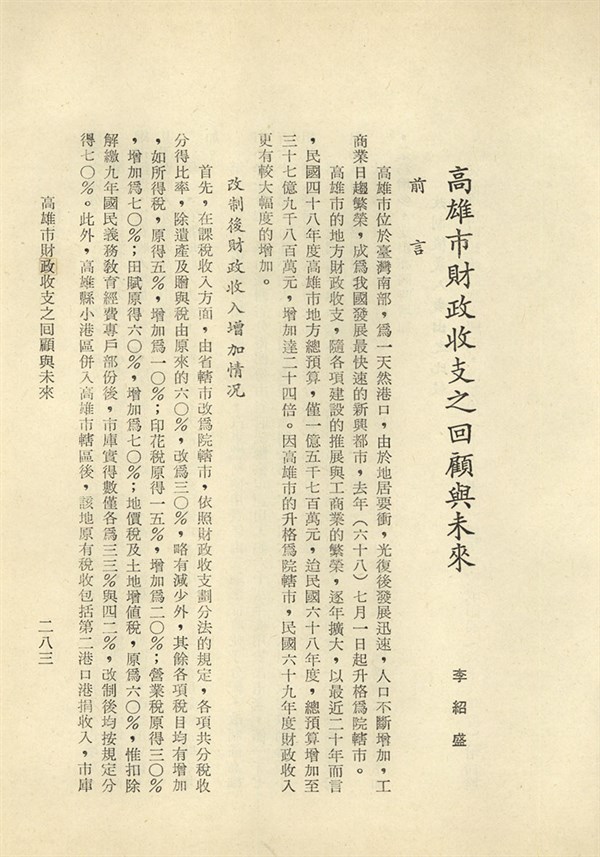 高雄市財政收支之回顧與未來
李紹盛
前言
高雄市位於臺灣南部，爲一天然港口，由於地居要衝，光復後發展迅速，人口不斷增加，工
商業日趨繁榮，成爲我國發展最快速的新興都市，去年（六十八）七月一日起升格爲院轄市。
高雄市的地方財政收支，隨各項建設的推展與工商業的繁榮，逐年擴大，以最近二十年而言
，民國四十八年度高雄市地方總預算，僅一億五千七百萬元，迨民國六十八年度，總預算增加至
三十七億九千八百萬元，增加達二十四倍。因高雄市的升格爲院轄市，民國六十九年度財政收入
更有較大幅度的增加。
改制後財政收入增加情況
首先，在課稅收入方面，由省轄市改爲院轄市，依照財政收支劃分法的規定，各項共分稅收
分得比率，除遺產及贈與稅由原來的六〇%，改爲三〇%，略有減少外，其餘各項稅目均有增加
，如所得稅，原得五%，增加爲一〇%；印花稅原得一五%，增加爲二〇%；營業稅原得三〇%
，增加爲七〇%；田賦原得六〇%，增加爲七〇%；地價稅及土地增値稅，原爲六〇%，惟扣除
解繳九年國民義務敎育經費專戶部份後，市庫實得數僅各爲三三%與四二%，改制後均按規定分
得七〇%。此外，高雄縣小港區併入高雄市轄區後，該地原有稅收包括第二港口港捐收入，市庫
高雄市財政收支之回顧與未來
二八三